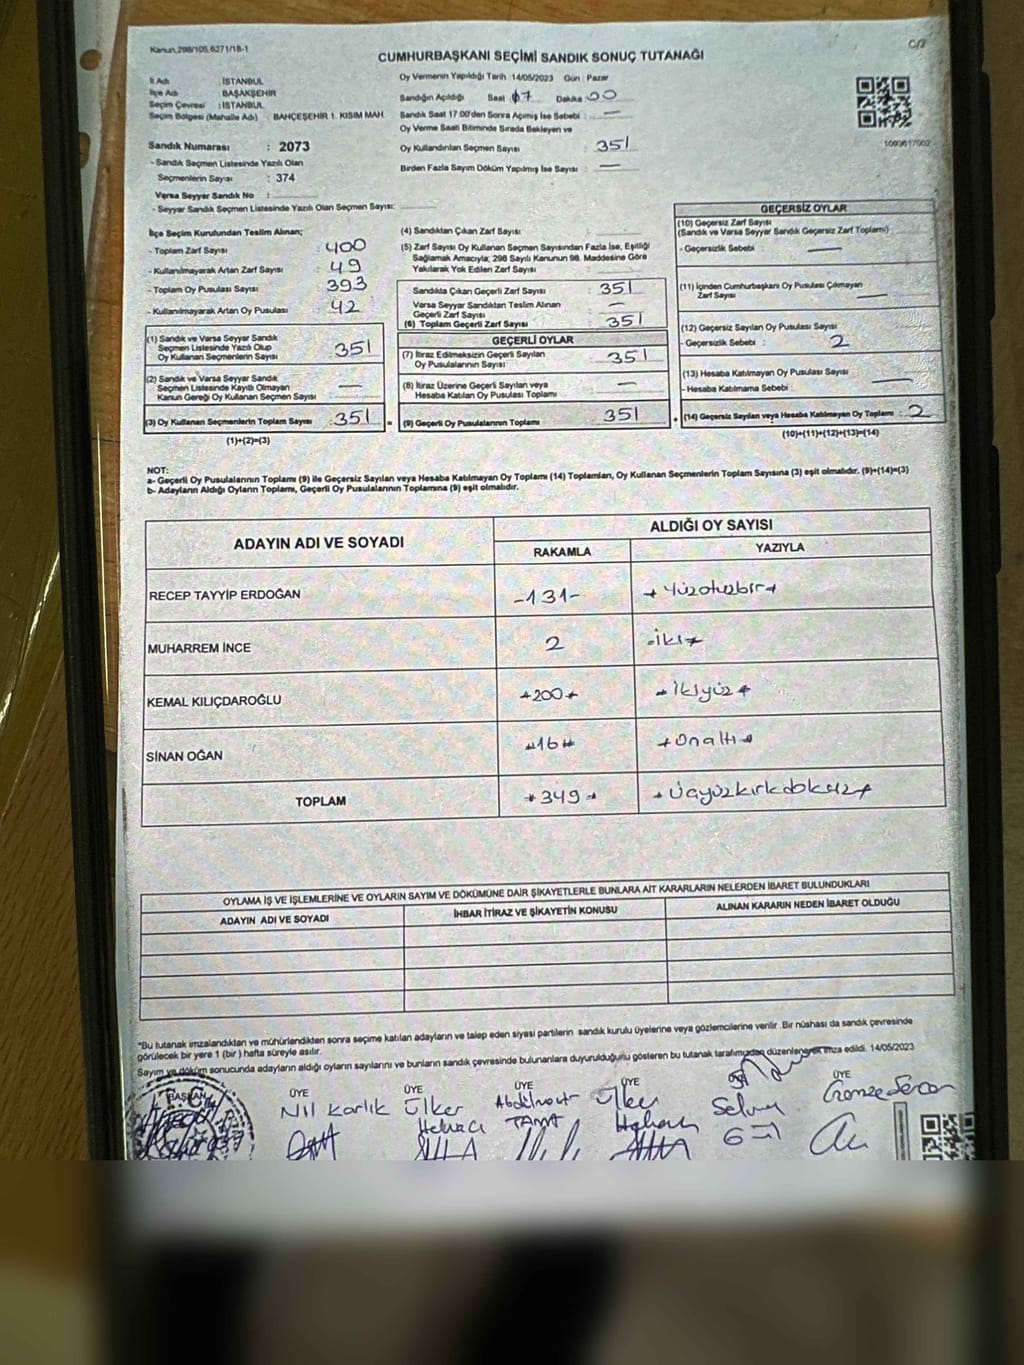 Kanun,298/105,6271/18-1
C/2
CUMHURBAŞKANI SEÇİMİ SANDIK SONUÇ TUTANAĞI
İl Adı : İSTANBUL
İlçe Adı : BAŞAKŞEHİR
Seçim Çevresi : İSTANBUL
Seçim Bölgesi (Mahalle Adı) : BAHÇEŞEHİR 1. KISIM MAH
Sandık Numarası : 2073
- Sandık Seçmen Listesinde Yazılı Olan
Seçmenlerin Sayısı : 374
Varsa Seyyar Sandık No :
- Seyyar Sandık Seçmen Listesinde Yazılı Olan Seçmen Sayısı:
Oy Vermenin Yapıldığı Tarih :14/05/2023 Gün : Pazar
Sandığın Açıldığı Saat 07 Dakika 00
Sandık Saat 17:00'den Sonra Açılmış İse Sebebi : —
Oy Verme Saati Bitiminde Sırada Bekleyen ve
Oy Kullandırılan Seçmen Sayısı : 351
Birden Fazla Sayım Döküm Yapılmış İse Sayısı : —
1093617002
İlçe Seçim Kurulundan Teslim Alınan;
- Toplam Zarf Sayısı : 400
- Kullanılmayarak Artan Zarf Sayısı : 49
- Toplam Oy Pusulası Sayısı : 393
- Kullanılmayarak Artan Oy Pusulası : 42
(1) Sandık ve Varsa Seyyar Sandık
Seçmen Listesinde Yazılı Olup
Oy Kullanan Seçmenlerin Sayısı : 351
(2) Sandık ve Varsa Seyyar Sandık
Seçmen Listesinde Kayıtlı Olmayan
Kanun Gereği Oy Kullanan Seçmen Sayısı : —
(3) Oy Kullanan Seçmenlerin Toplam Sayısı : 351
(1)+(2)=(3)
(4) Sandıktan Çıkan Zarf Sayısı :
(5) Zarf Sayısı Oy Kullanan Seçmen Sayısından Fazla İse, Eşitliği
Sağlamak Amacıyla; 298 Sayılı Kanunun 98. Maddesine Göre
Yakılarak Yok Edilen Zarf Sayısı :
Sandıkta Çıkan Geçerli Zarf Sayısı : 351
Varsa Seyyar Sandıktan Teslim Alınan
Geçerli Zarf Sayısı : —
(6) Toplam Geçerli Zarf Sayısı : 351
GEÇERLİ OYLAR
(7) İtiraz Edilmeksizin Geçerli Sayılan
Oy Pusulalarının Sayısı : 351
(8) İtiraz Üzerine Geçerli Sayılan veya
Hesaba Katılan Oy Pusulası Toplamı : —
(9) Geçerli Oy Pusulalarının Toplamı : 351
GEÇERSİZ OYLAR
(10) Geçersiz Zarf Sayısı
(Sandık ve Varsa Seyyar Sandık Geçersiz Zarf Toplamı) :
- Geçersizlik Sebebi : —
(11) İçinden Cumhurbaşkanı Oy Pusulası Çıkmayan
Zarf Sayısı : —
(12) Geçersiz Sayılan Oy Pusulası Sayısı :
- Geçersizlik Sebebi : 2
(13) Hesaba Katılmayan Oy Pusulası Sayısı : —
- Hesaba Katılmama Sebebi :
(14) Geçersiz Sayılan veya Hesaba Katılmayan Oy Toplamı : 2
(10)+(11)+(12)+(13)=(14)
NOT:
a- Geçerli Oy Pusulalarının Toplamı (9) ile Geçersiz Sayılan veya Hesaba Katılmayan Oy Toplamı (14) Toplamları, Oy Kullanan Seçmenlerin Toplam Sayısına (3) eşit olmalıdır. (9)+(14)=(3)
b- Adayların Aldığı Oyların Toplamı, Geçerli Oy Pusulalarının Toplamına (9) eşit olmalıdır.
ADAYIN ADI VE SOYADI
ALDIĞI OY SAYISI
RAKAMLA YAZIYLA
RECEP TAYYİP ERDOĞAN -131- Yüzotuzbir
MUHARREM İNCE 2 -iki
KEMAL KILIÇDAROĞLU 200 ikiyüz
SİNAN OĞAN 16 onaltı
TOPLAM 349 üçyüzkırkdokuz
OYLAMA İŞ VE İŞLEMLERİNE VE OYLARIN SAYIM VE DÖKÜMÜNE DAİR ŞİKAYETLERLE BUNLARA AİT KARARLARIN NELERDEN İBARET BULUNDUKLARI
ADAYIN ADI VE SOYADI İHBAR İTİRAZ VE ŞİKAYETİN KONUSU ALINAN KARARIN NEDEN İBARET OLDUĞU
*Bu tutanak imzalandıktan ve mühürlendikten sonra seçime katılan adayların ve talep eden siyasi partilerin sandık kurulu üyelerine veya gözlemcilerine verilir. Bir nüshası da sandık çevresinde
görülecek bir yere 1 (bir) hafta süreyle asılır.
Sayım ve döküm sonucunda adayların aldığı oyların sayılarını ve bunların sandık çevresinde bulunanlara duyurulduğunu gösteren bu tutanak tarafımızdan düzenlenerek imza edildi. 14/05/2023
BAŞKAN ÜYE ÜYE ÜYE ÜYE ÜYE
Nil Karlık Ülker Ülker Selma Gamze Sercan